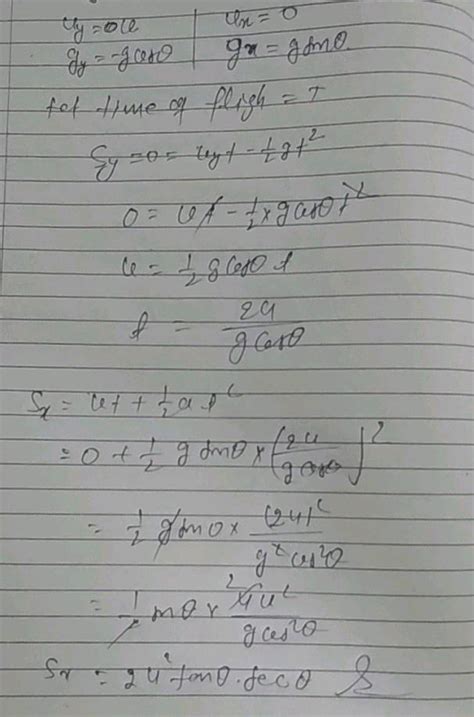 uy = u | ux = 0
gy = -g cosθ | gx = g sinθ
tot time of fligh = T
Sy = 0 = uyt - 1/2 gt²
0 = ut - 1/2 × g cosθ t²
u = 1/2 g cosθ t
t = 2u / g cosθ
Sx = ut + 1/2 a t²
= 0 + 1/2 g sinθ × (2u / g cosθ)²
= 1/2 g sinθ × (2u)² / g² cos²θ
= 1/2 sinθ × 4u² / g cos²θ
Sx = 2u² tanθ . secθ